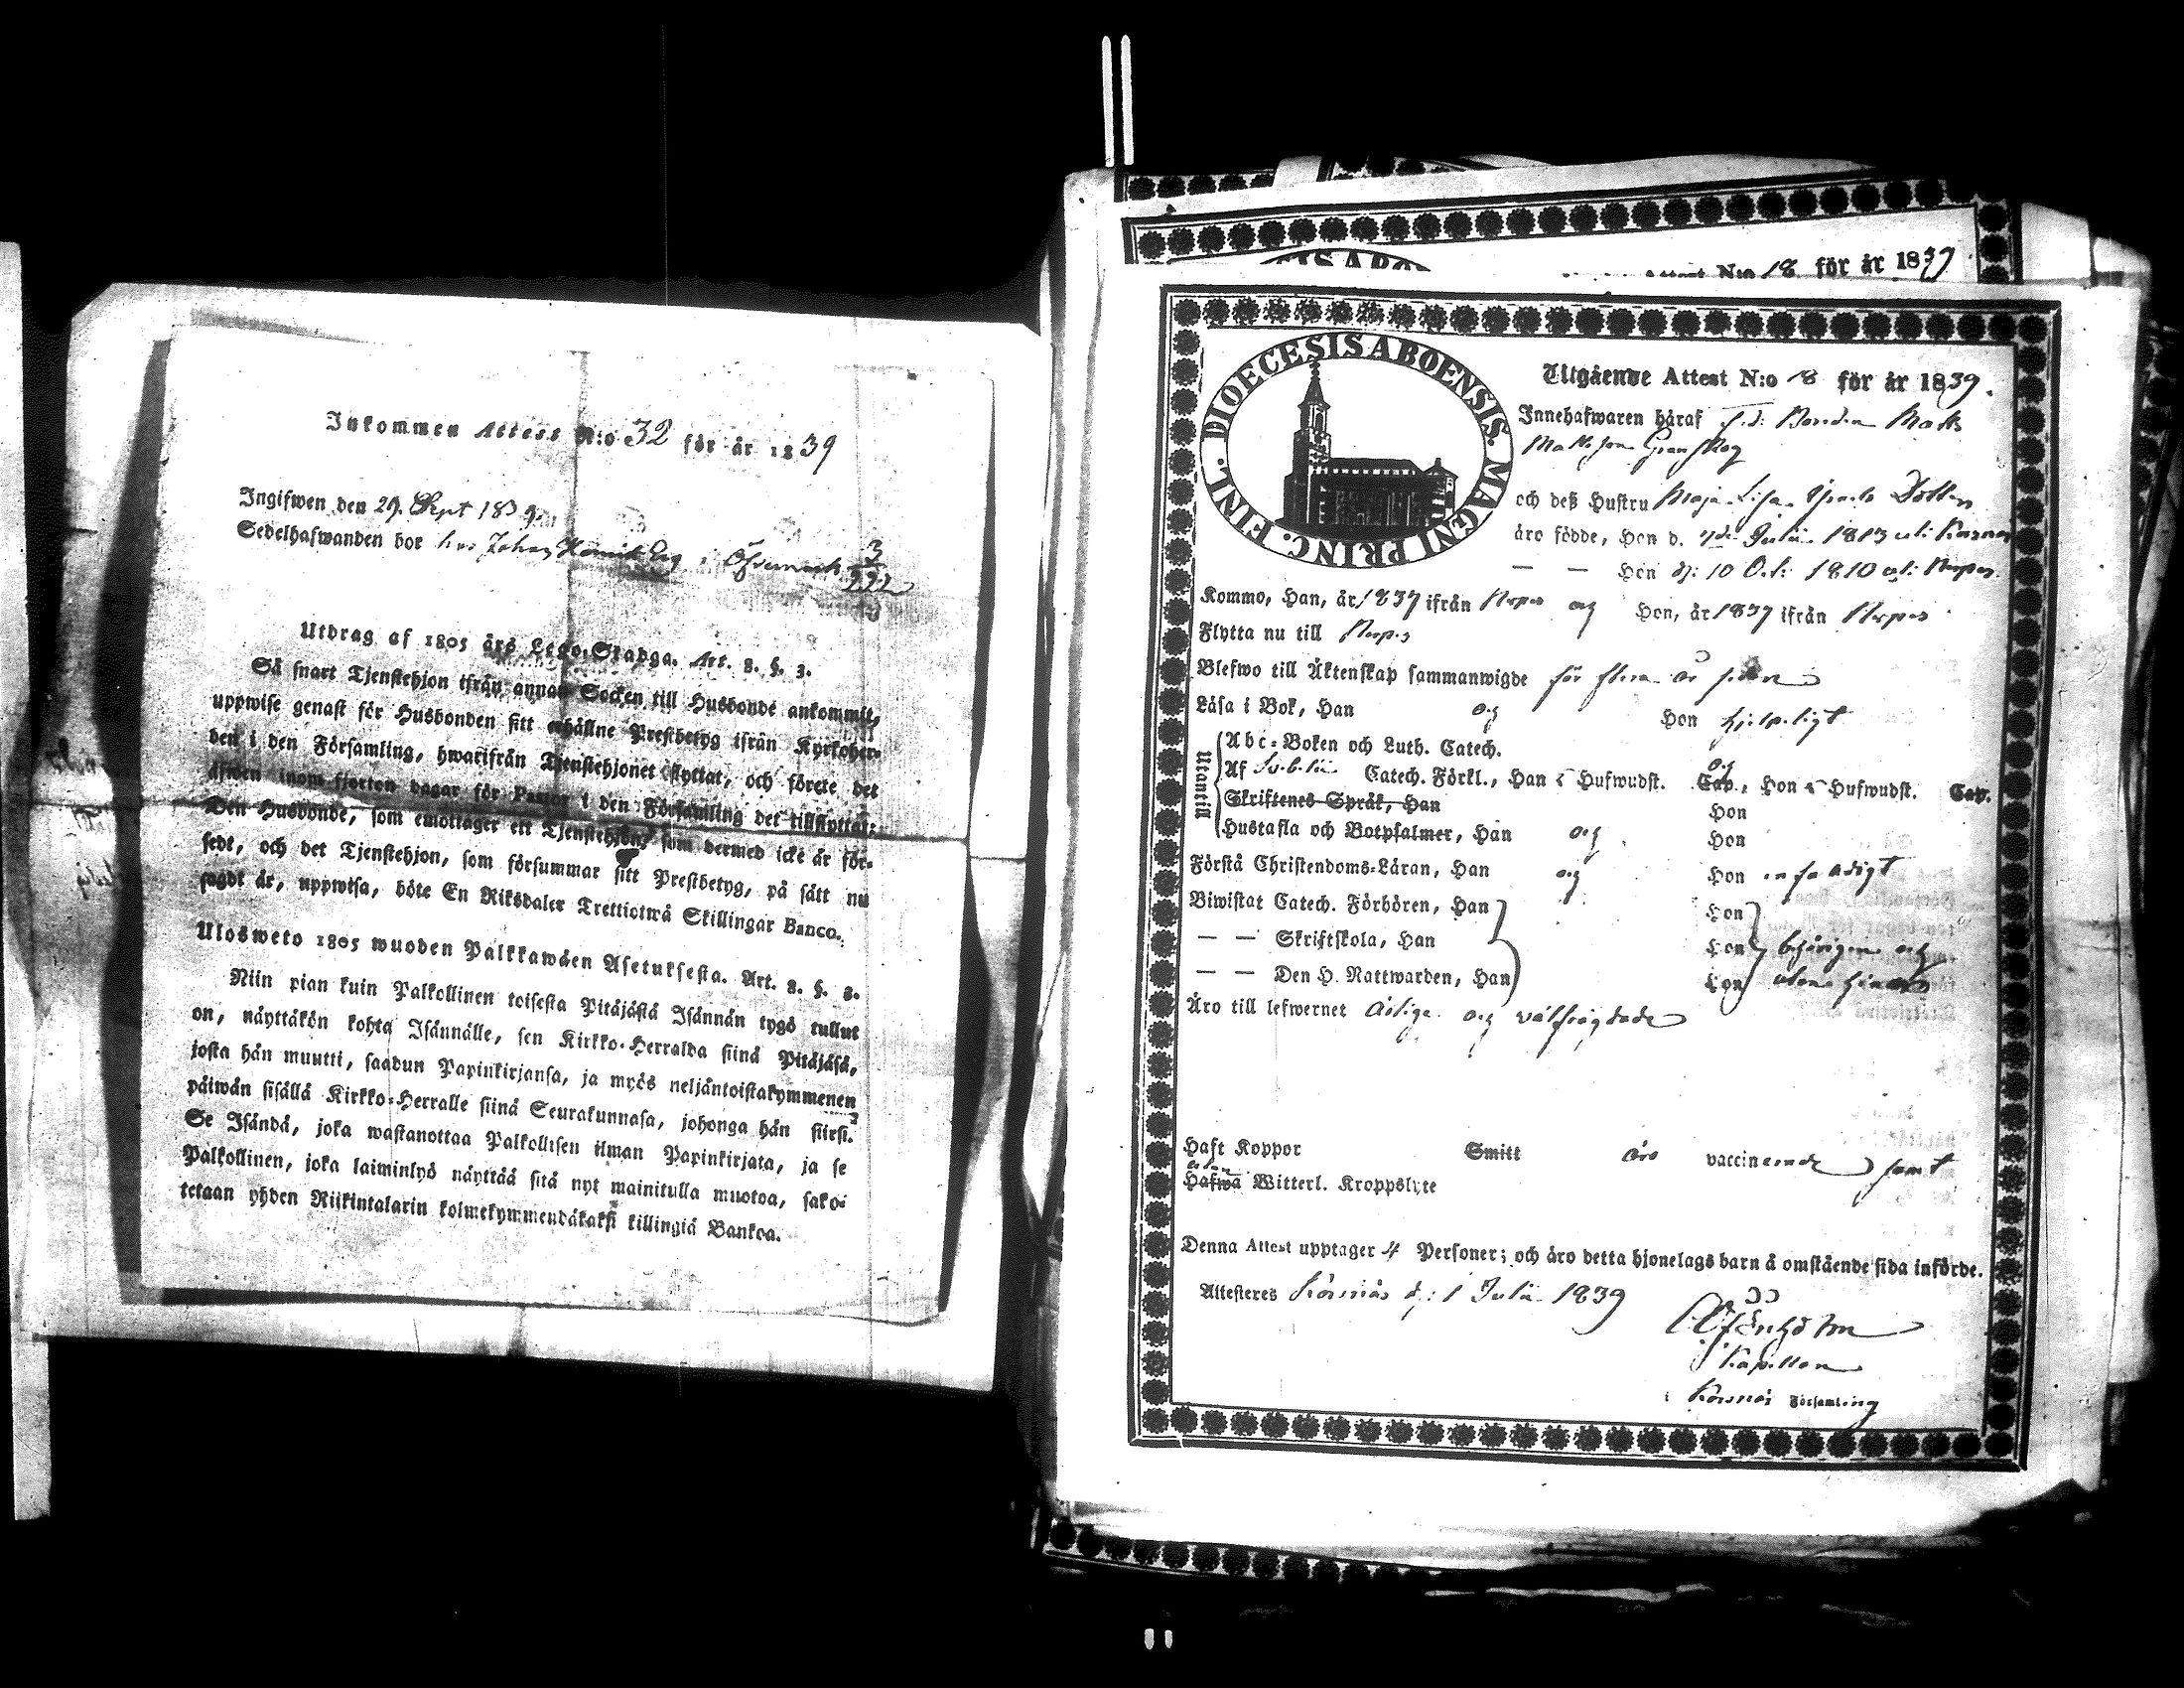 Inkommen Attest N:o 32 för år 1839
Ingifwen den 29. Sept 1839.
Sedelhafwanden bor hos Johan i Öfvermark 3
222
Utdrag af 1805 års Lego-Stadga. Art. 8. §. 3.
Så snart Tjenstehjon ifrån annan Socken till Husbonde ankommit,
uppwise genast för Husbonden sitt erhållne Prestbetyg ifrån Kyrkoher-
den i den Församling, hwarifrån Tjenstehjonet flyttat, och förete det
äfwen inom fjorton dagar för Pastor i den Församling det tillflyttat;
Den Husbonde, som emottager ett Tjenstehjon, som dermed icke är för-
sedt, och det Tjenstehjon, som försummar sitt Prestbetyg, på sätt nu
sagdt är, uppwisa, böte En Riksdaler Trettiotwå Skillingar Banco.
Ulosweto 1805 wuoden Palkkawäen Asetuksesta. Art. 8. §. 3.
Niin pian kuin Palkollinen toisesta Pitäjästä Isännän tygö tullut
on, näyttäkön kohta Isännälle, sen Kirkko-Herralda siinä Pitäjäsä,
josta hän muutti, saadun Papinkirjansa, ja myös neljäntoistakymmenen
päiwän sisällä Kirkko-Herralle siinä Seurakunnasa, johonga hän siirsi.
Se Isändä, joka wastanottaa Palkollisen ilman Papinkirjata, ja se
Palkollinen, joka laiminlyö näyttää sitä nyt mainitulla muotoa, sakoi-
tetaan yhden Riikintalarin kolmekymmendäkaksi killingiä Bankoa.
Attest N:o 18 för år 1839
DIOECESIS ABOENSIS. MAGNI PRINC. FINL.
Utgående Attest N:o 18 för år 1839.
Innehafwaren häraf F.d. Bonden Matts
Mattsson Granskog
och deß Hustru Maja Lisa Dotter
äro födde, Han d. Julii 1813 uti Korsnäs
— — Hon d: 10 Oct: 1810 uti Nerpes
Kommo, Han, år 1837 ifrån Nerpes och Hon, år 1837 ifrån Nerpes
Flytta nu till Nerpes
Blefwo till Äktenskap sammanwigde för flera år sedan
Läsa i Bok, Han och Hon hjelpeligt
Utantill
Abc-Boken och Luth. Catech.
Af Svebelii Catech. Förkl., Han 5 Hufwudst. Cap. och, Hon 5 Hufwudst. Cap.
Skriftenes Språk, Han Hon
Hustafla och Botpsalmer, Han och Hon
Förstå Christendoms-Läran, Han och Hon enfaldigt
Biwistat Catech. Förhören, Han Hon
— — Skriftskola, Han Hon behörigen och
— — Den H. Nattwarden, Han Hon utan hinder
Äro till lefwernet ärlige och välfrägdade
Haft Koppor Smitt äro vaccinerade samt
utan
Hafwa Witterl. Kroppslyte
Denna Attest upptager 4 Personer; och äro detta hjonelags barn å omstående sida införde.
Attesteres Korsnäs d: 1 Julii 1839
Kapellan
i Korsnäs Församling